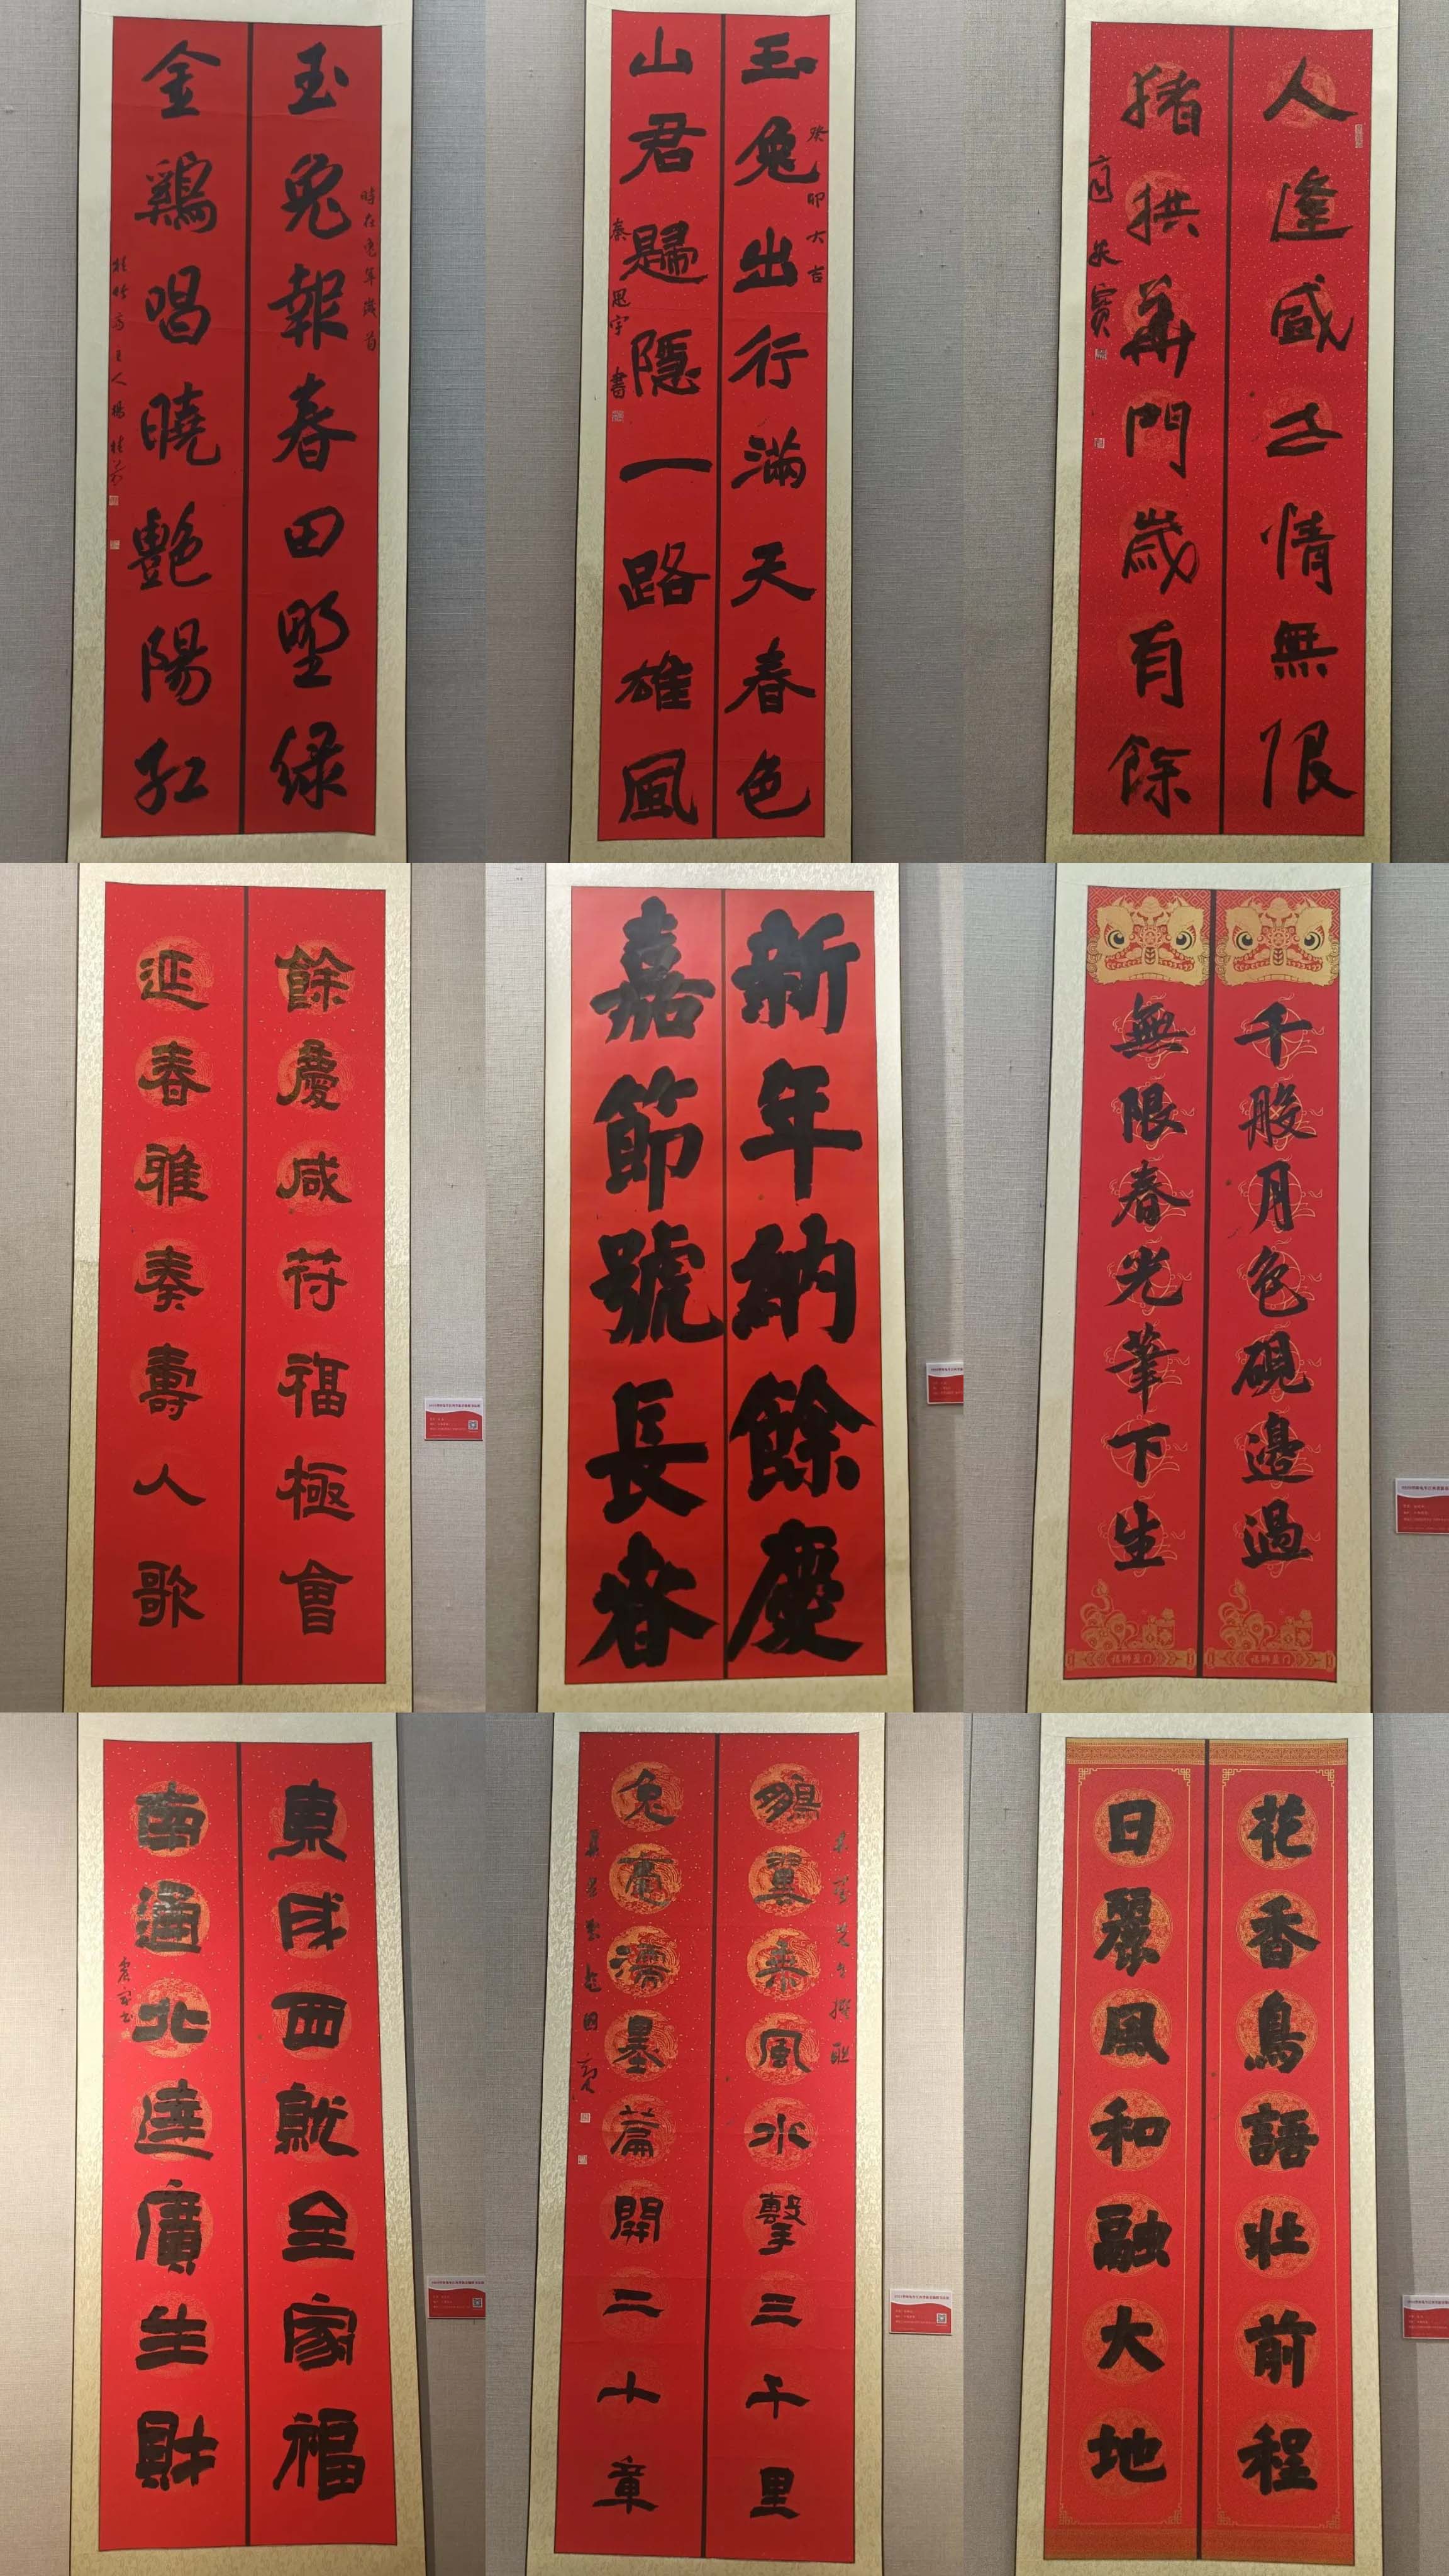 玉兔報春田野绿
時在兔年歲首
金鷄唱曉艷陽红
玉兔出行滿天春色
癸卯大吉
山君歸隱一路雄風
秦思宇書
人逢盛世情無限
猪拱華門歲有餘
餘慶咸符福極會
延春雅奏壽人歌
新年納餘慶
嘉節號長春
千般月色硯邊過
無限春光筆下生
福獅盈门
福獅盈门
東成西就全家福
南通北達廣生財
鵷翼乘風水擊三千里
兔膏濡墨篇開二十章
花香鳥語壯前程
日麗風和融大地